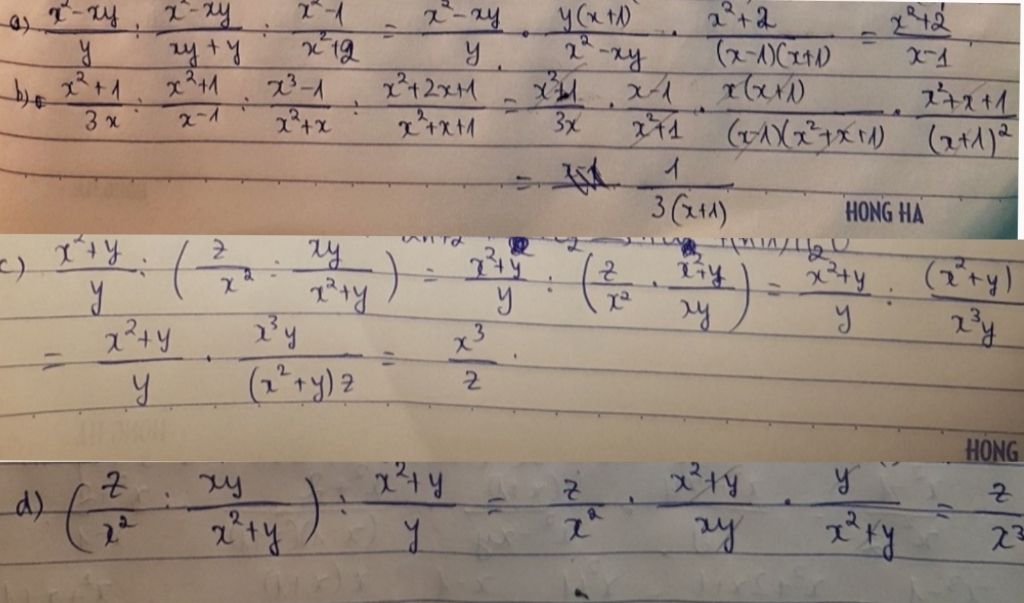 a) \frac{x^2-xy}{y} : \frac{x^2-xy}{xy+y} : \frac{x^2-1}{x^2+2} = \frac{x^2-xy}{y} . \frac{y(x+1)}{x^2-xy} . \frac{x^2+2}{(x-1)(x+1)} = \frac{x^2+2}{x-1}.
b) \frac{x^2+1}{3x} : \frac{x^2+1}{x-1} : \frac{x^3-1}{x^2+x} : \frac{x^2+2x+1}{x^2+x+1} = \frac{x^2+1}{3x} . \frac{x-1}{x^2+1} . \frac{x(x+1)}{(x-1)(x^2+x+1)} . \frac{x^2+x+1}{(x+1)^2}
= \frac{1}{3(x+1)}
HONG HA
c) \frac{x^2+y}{y} : \left(\frac{z}{x^2} : \frac{xy}{x^2+y}\right) = \frac{x^2+y}{y} : \left(\frac{z}{x^2} . \frac{x^2+y}{xy}\right) = \frac{x^2+y}{y} : \frac{(x^2+y)}{x^3y}
= \frac{x^2+y}{y} . \frac{x^3y}{(x^2+y)z} = \frac{x^3}{z}.
HONG
d) \left(\frac{z}{x^2} : \frac{xy}{x^2+y}\right) : \frac{x^2+y}{y} = \frac{z}{x^2} . \frac{x^2+y}{xy} . \frac{y}{x^2+y} = \frac{z}{x^3}